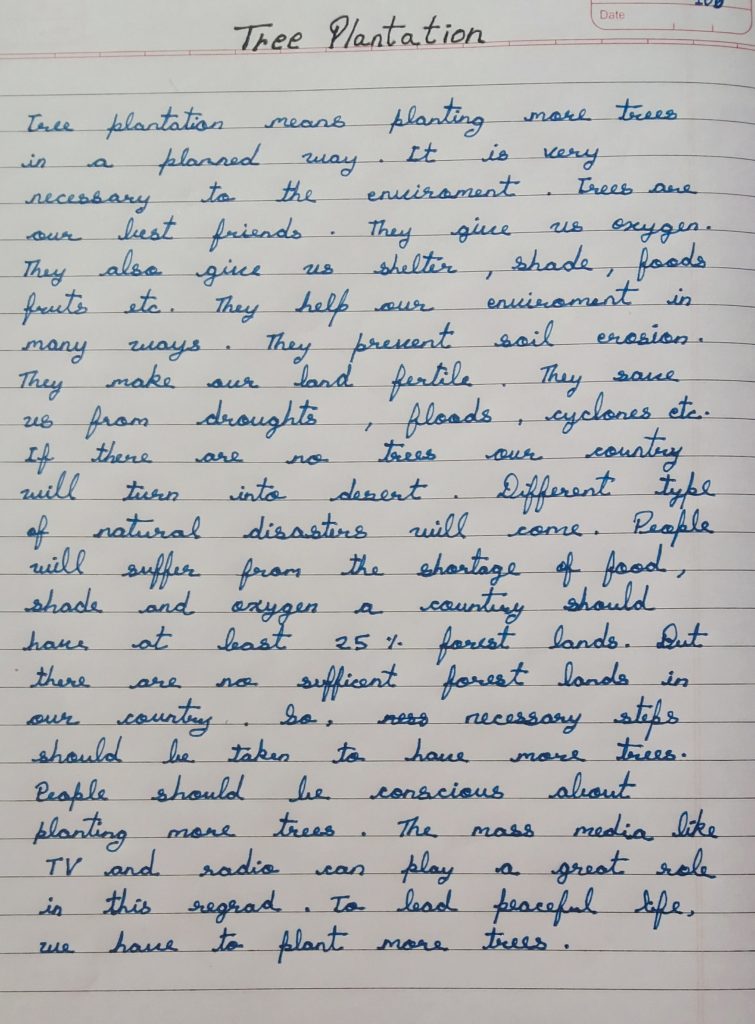 Date
Tree Plantation
Tree plantation means planting more trees
in a planned way. It is very
necessary to the enviroment. Trees are
our best friends. They give us oxygen.
They also give us shelter, shade, foods
fruits etc. They help our enviroment in
many ways. They prevent soil erosion.
They make our land fertile. They save
us from droughts, floods, cyclones etc.
If there are no trees our country
will turn into desert. Different type
of natural disasters will come. People
will suffer from the shortage of food,
shade and oxygen a country should
have at least 25% forest lands. But
there are no sufficent forest lands in
our country. So, necessary steps
should be taken to have more trees.
People should be conscious about
planting more trees. The mass media like
TV and radio can play a great role
in this regrad. To lead peaceful life,
we have to plant more trees.